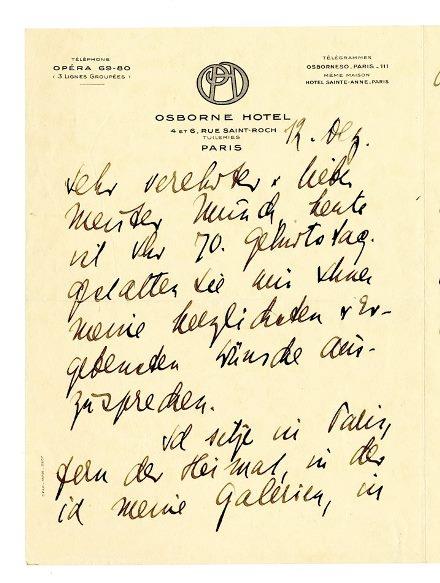 TÉLÉPHONE
OPÉRA 69-80
(3 LIGNES GROUPÉES)
TÉLÉGRAMMES
OSBORNESO, PARIS_111
MÊME MAISON
HOTEL SAINTE-ANNE, PARIS
OSBORNE HOTEL
4 ET 6, RUE SAINT-ROCH
TUILERIES
PARIS
12. Dez.
Sehr verehrter & lieber
Meister Munch, heute
ist Ihr 70. Geburtstag.
gestatten Sie mir Ihnen
meine herzlichsten & Er-
gebensten Wünsche aus-
zusprechen.
Ich sitze in Paris,
fern der Heimat, in der
ich meine Galerien, in